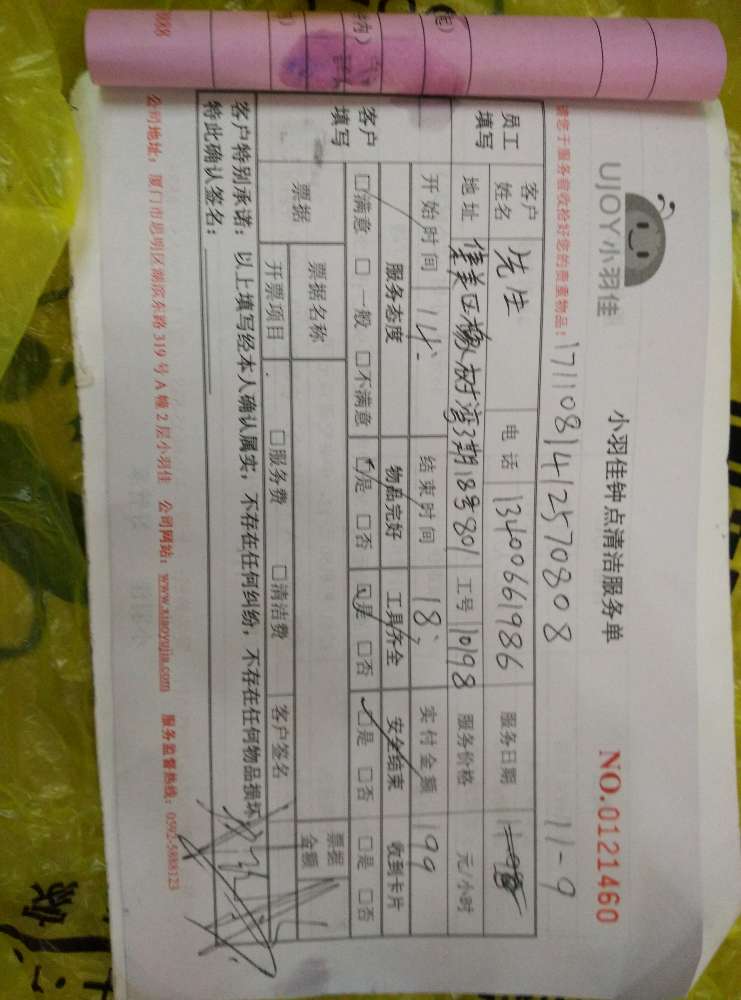 UJOY小羽佳
小羽佳钟点清洁服务单
NO.0121460
请您于服务前收拾好您的贵重物品：
1711081412570808
11-9
员工填写
客户姓名 先生 电话 13400661986 服务日期
地址 集美区橡树湾3期18号801 工号 10198 服务价格 元/小时
开始时间 14: 结束时间 18: 实付金额 199
客户填写
服务态度 物品完好 工具齐全 安全结束 收到卡片
□满意 □一般 □不满意 □是 □否 □是 □否 □是 □否 □是 □否
票据 票据名称 票据金额
开票项目 □服务费 □清洁费 客户签名
客户特别承诺：以上填写经本人确认属实，不存在任何纠纷，不存在任何物品损坏。
特此确认签名：
公司地址：厦门市思明区湖滨东路319号A幢2层小羽佳 公司网站：www.xiaoyujia.com 服务监督热线：0592-5888123